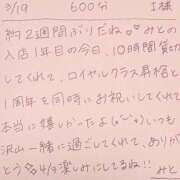 3/19 600分 I様
約2週間ぶりだね♡みとの
入店1年目の今日、10時間貸切
してくれて、ロイヤルクラス昇格と
1周年を同時にお祝いしてくれて
本当に嬉しかったよ(〜+)いつも
沢山一緒に過ごしてくれて、ありが
とう 4/9楽しみにしてるね!! みと